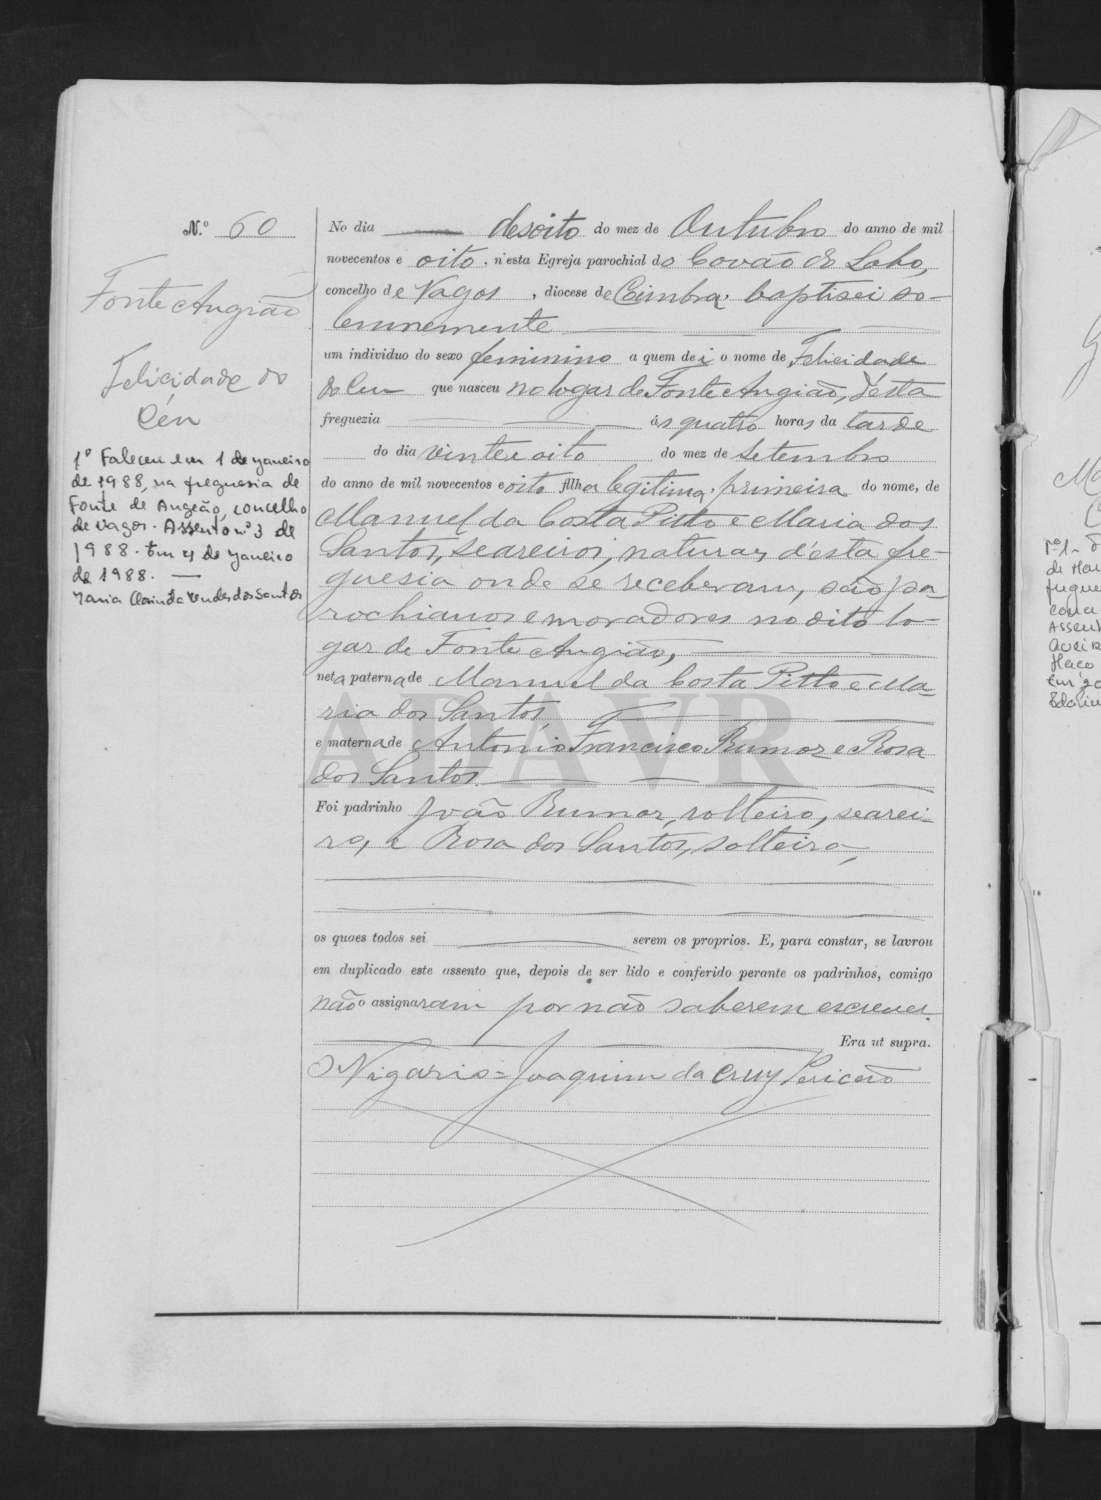 N.º 60
Fonte Angião
Felicidade do
Céu
1º Faleceu em 1 de janeiro
de 1988, na freguesia de
Fonte de Angeão, concelho
de Vagos. Assento nº 3 de
1988. Em 4 de janeiro
de 1988. —
No dia desoito do mez de Outubro do anno de mil
novecentos e oito, n'esta Egreja parochial do Covão do Lobo,
concelho de Vagos, diocese de Coimbra, baptisei so-
lemnemente
um individuo do sexo feminino a quem dei o nome de Felicidade
do Ceu que nasceu no logar de Fonte Angião, d'esta
freguezia ás quatro horas da tarde
do dia vinte e oito do mez de Setembro
do anno de mil novecentos e oito filha legitima, primeira do nome, de
Manuel da Costa Pitto e Maria dos
Santos, seareiros, naturaes d'esta fre-
guesia onde se receberam, são pa-
rochianos e moradores no dito lo-
gar de Fonte Angião,
neta paterna de Manuel da Costa Pitto e Ma-
ria dos Santos
e materna de Antonio Francisco Rumor e Rosa
dos Santos.
Foi padrinho João Rumor, solteiro, searei-
ro, e Rosa dos Santos, solteira,
os quaes todos sei serem os proprios. E, para constar, se lavrou
em duplicado este assento que, depois de ser lido e conferido perante os padrinhos, comigo
não o assignaram por não saberem escrever.
Era ut supra.
O Vigario = Joaquim da Cruz
ADAVR